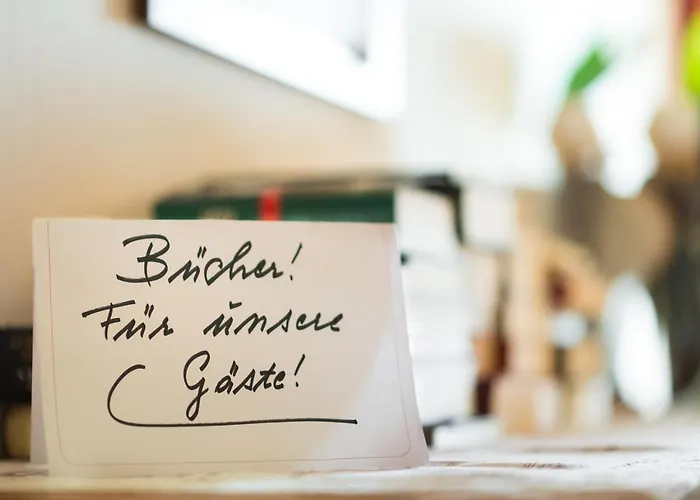 Bücher!
Für unsere
Gäste!